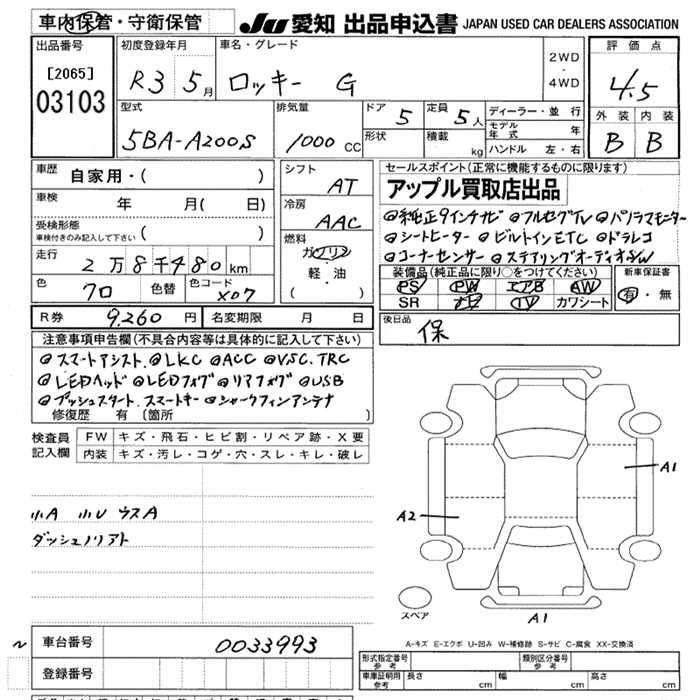 車内保管・守衛保管 JU 愛知 出品申込書 JAPAN USED CAR DEALERS ASSOCIATION
出品番号 初度登録年月 車名・グレード 評価点
[2065] R3 5月 ロッキー G 2WD・4WD 4.5
03103
型式 排気量 ドア 5 定員 5人 ディーラー・並行 外装 内装
5BA-A200S 1000 CC 形状 積載 kg モデル年式 年 B B
ハンドル 左・右
車歴 自家用・( ) シフト AT セールスポイント(正常に機能するものに限ります)
アップル買取店出品
車検 年 月( 日) 冷房 AAC
◎純正9インチナビ ◎フルセグTV ◎パノラマモニター
受検形態 車検付きのみ記入して下さい ( ) 燃料 ガソリン
◎シートヒーター ◎ビルトインETC ◎ドラレコ
走行 2万8千480km 軽・油 ( )
◎コーナーセンサー ◎ステアリングオーディオSW
色 クロ 色替 色コード X07
装備品(純正品に限り○をつけてください) 新車保証書
PS PW エアB AW 有・無
SR ナビ TV カワシート
R券 9,260円 名変期限 月 日 後日品
保
注意事項申告欄(不具合内容等は具体的に記入して下さい)
◎スマートアシスト ◎LKC ◎ACC ◎VSC.TRC
◎LEDヘッド ◎LEDフォグ ◎リアフォグ ◎USB
◎プッシュスタート.スマートキー ◎シャークフィンアンテナ
修復歴 有 〔箇所
検査員記入欄 FW キズ・飛石・ヒビ割・リペア跡・X要
内装 キズ・汚レ・コゲ・穴・スレ・キレ・破レ
A1
小A 小U ウスA
A2
ダッシュノリアト
スペア
A1
車台番号 0033993
A-キズ E-エクボ U-凹み W-補修跡 S-サビ C-腐食 XX-交換済
登録番号
形式指定番号 参考 類別区分番号 参考
車庫証明用 参考 長さ cm 幅 cm 高さ cm